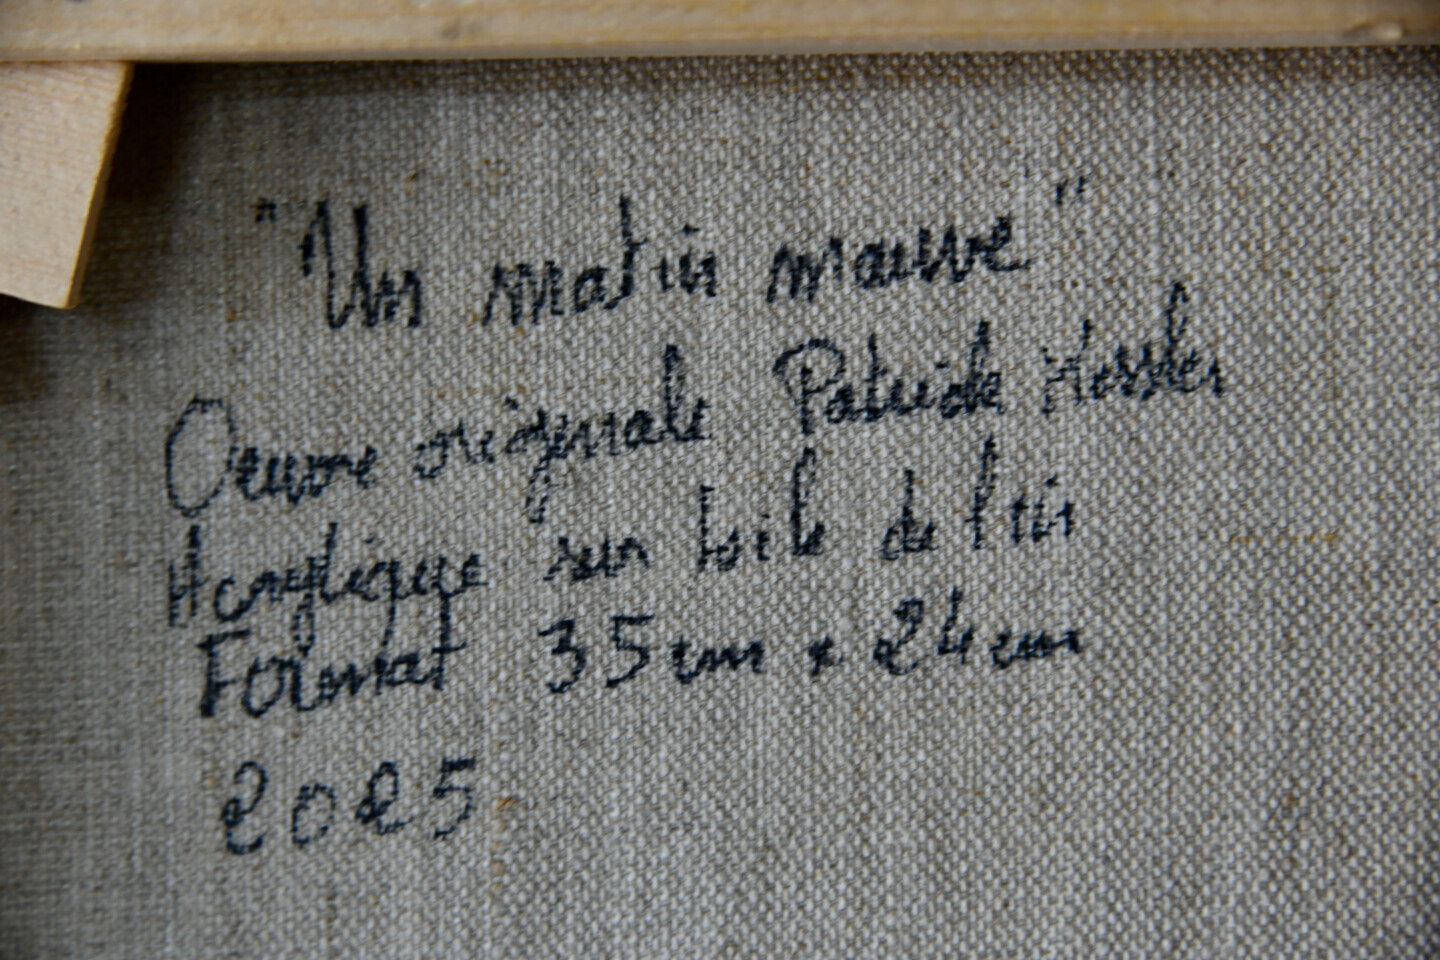 "Un matin mauve"
Oeuvre originale Patrick
Acrylique sur toile de lin
Format 35cm x 24cm
2025